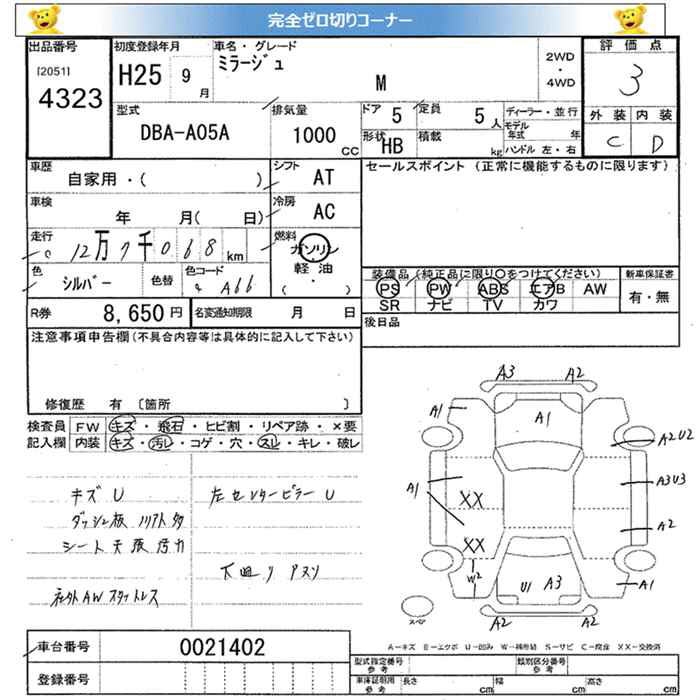 完全ゼロ切りコーナー
出品番号
[2051]
4323
初度登録年月
H25 9 月
車名・グレード
ミラージュ
M
2WD
・
4WD
評価点
3
外装 内装
C D
型式
DBA-A05A
排気量
1000 CC
ドア 5
形状 HB
定員 5 人
積載 kg
ディーラー・並行
モデル年式 年
ハンドル 左・右
車歴
自家用・( )
シフト
AT
車検
年 月( 日)
冷房
AC
走行
12万7千068 km
燃料
ガソリン
・
軽油
( )
色
シルバー
色替
色コード
A66
R券 8,650円
名変通知期限 月 日
セールスポイント (正常に機能するものに限ります)
装備品 (純正品に限り○をつけてください)
PS PW ABS エアB AW
SR ナビ TV カワ
新車保証書
有・無
後日品
注意事項申告欄(不具合内容等は具体的に記入して下さい)
修復歴 有 〔箇所 〕
検査員記入欄
FW キズ・飛石・ヒビ割・リペア跡・×要
内装 キズ・汚レ・コゲ・穴・スレ・キレ・破レ
キズ U
ダッシュ板 ノリアト多
シート天張汚れ
社外AWスタットレス
左センターピラー U
下廻り アスリ
A3 A2
A1 A1 A2U2
A1 XX A3U3
XX A2
W2 U1 A3 A1
A2 A2
スペア
A-キズ E-エクボ U-凹み W-補修跡 S-サビ C-腐食 XX-交換済
車台番号 0021402
登録番号
型式指定番号 参考
類別区分番号 参考
車庫証明用 参考
長さ cm
幅 cm
高さ cm